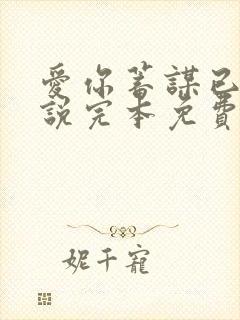 愛你蓄謀已
說完本免費
妮千寵